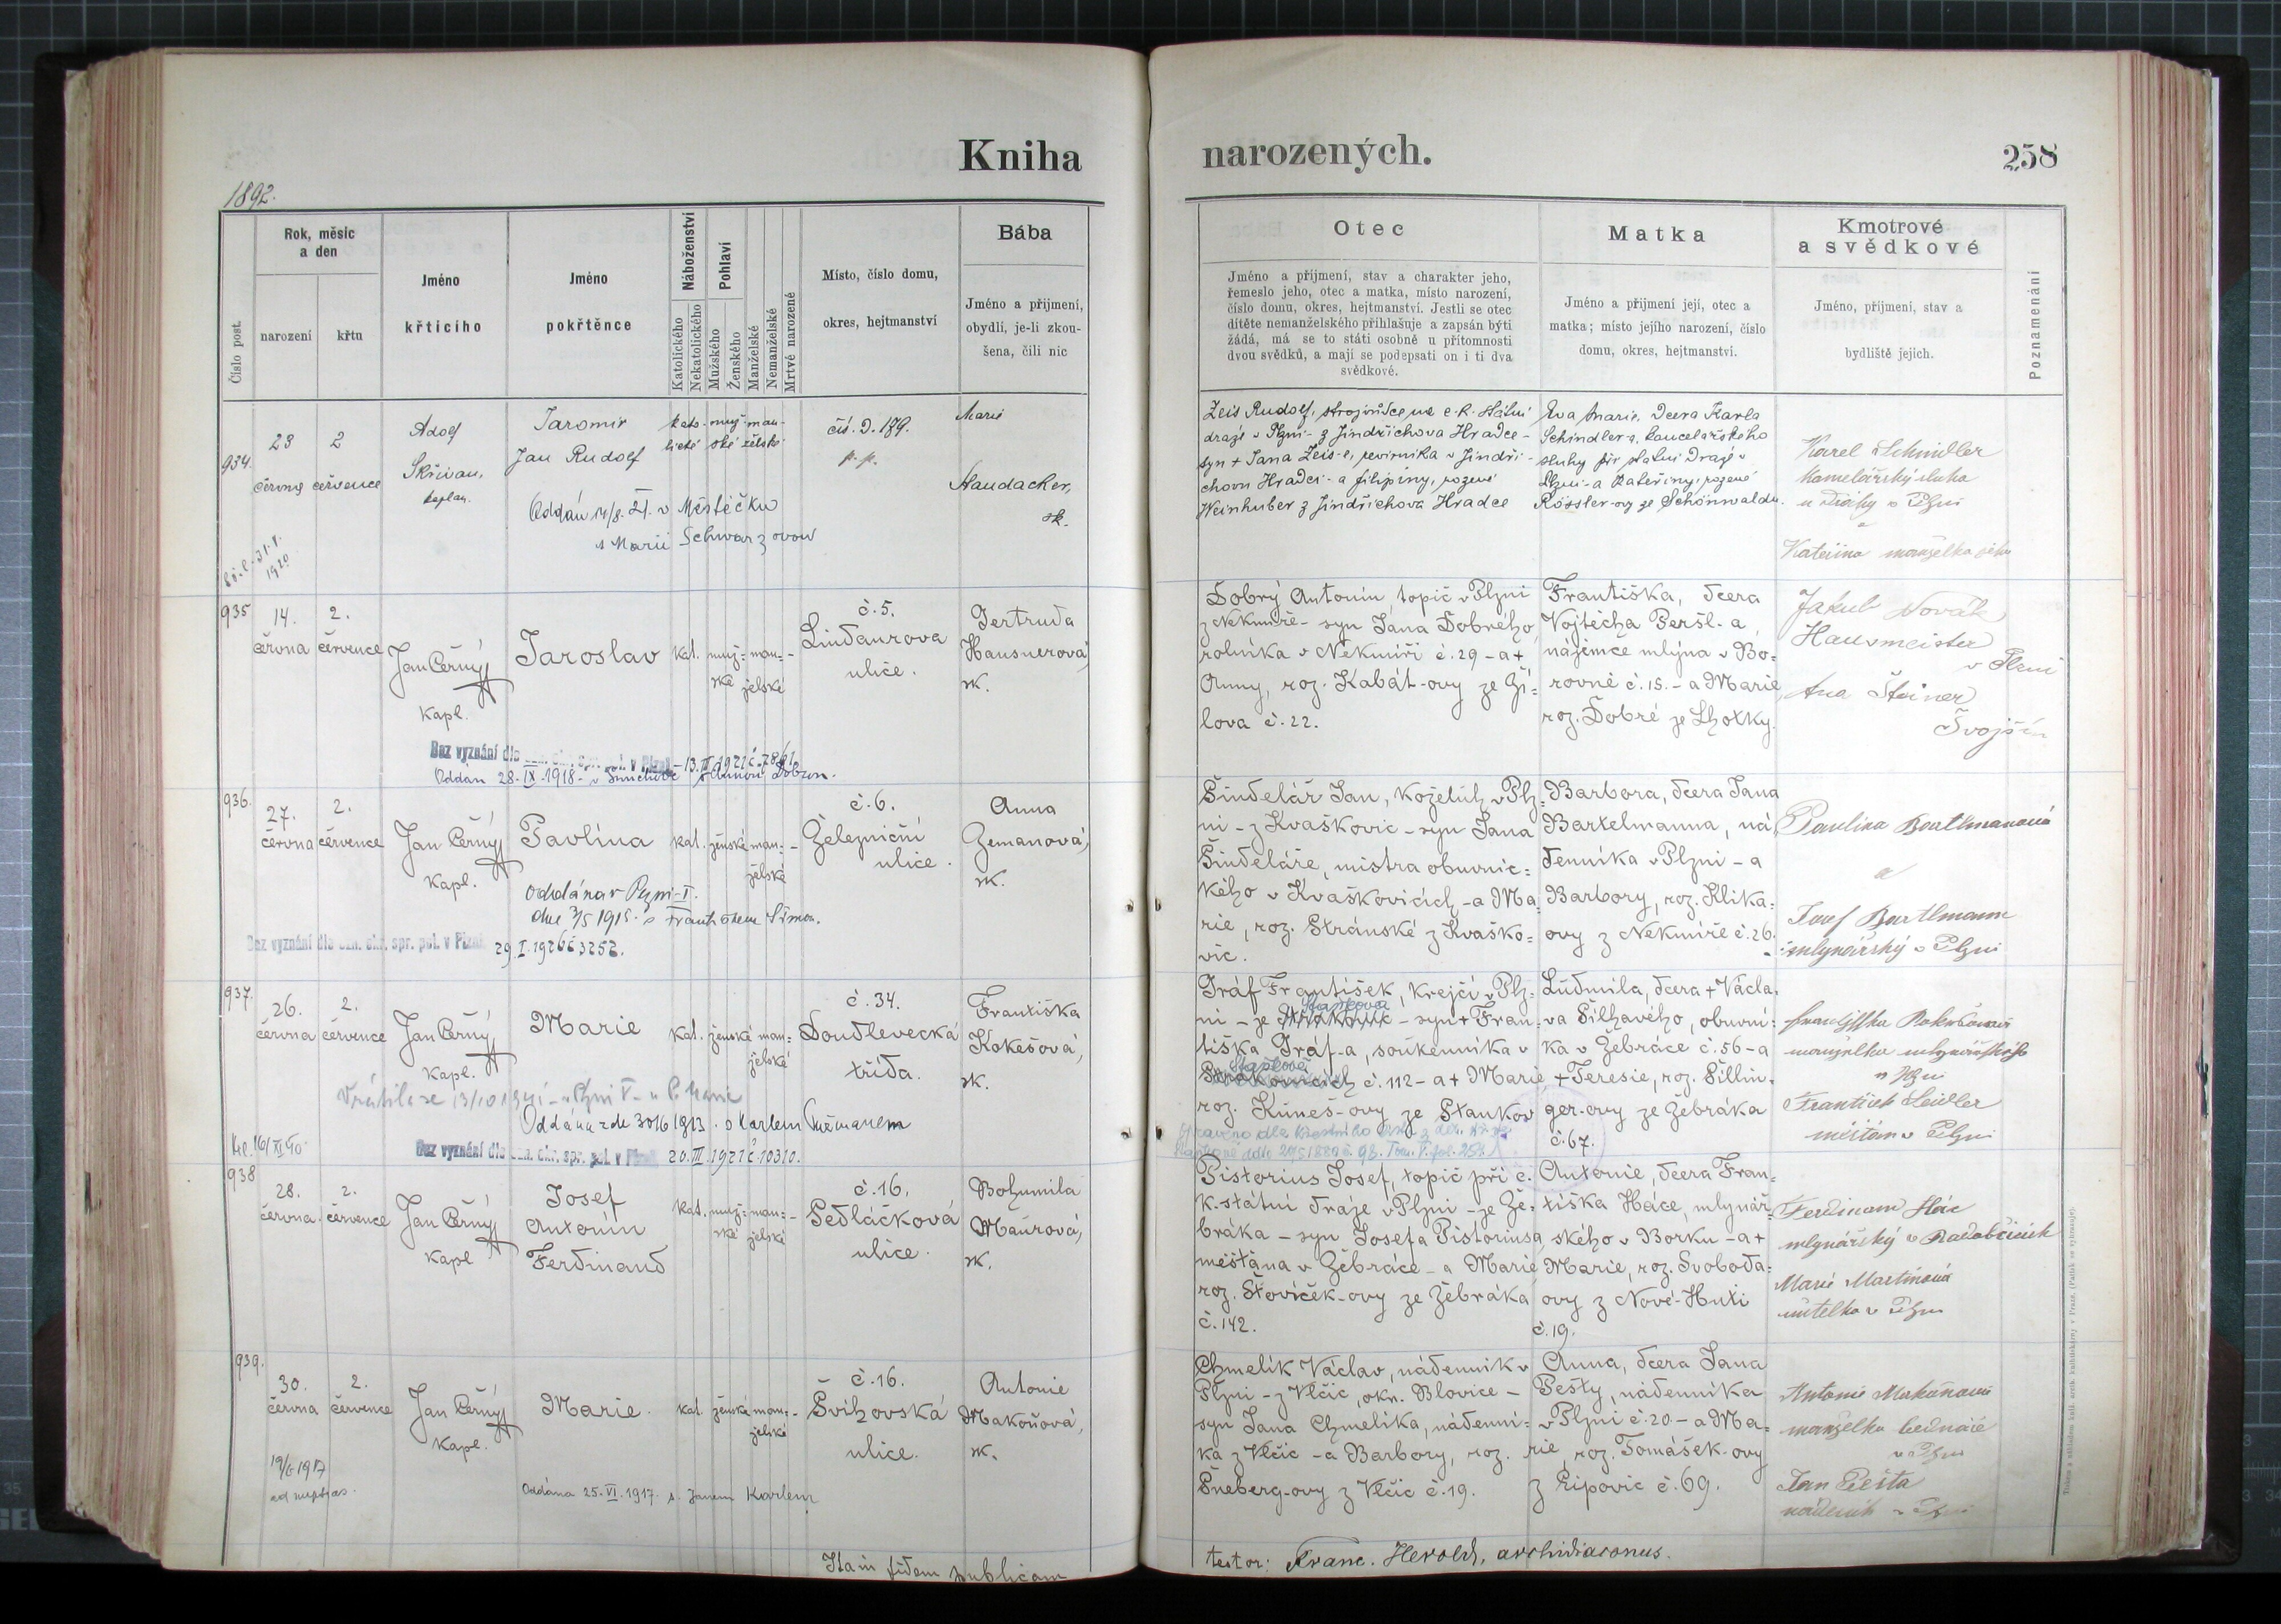 Kniha
narozených.
258
1892.
Číslo post.
Rok, měsíc
a den
narození
křtu
Jméno
křticího
Jméno
pokřtěnce
Náboženství
Katolického
Nekatolického
Pohlaví
Mužského
Ženského
Manželské
Nemanželské
Mrtvě narozené
Místo, číslo domu,
okres, hejtmanství
Bába
Jméno a přijmení,
obydlí, je-li zkou-
šena, čili nic
Otec
Jméno a příjmení, stav a charakter jeho,
řemeslo jeho, otec a matka, místo narození,
číslo domu, okres, hejtmanství. Jestli se otec
dítěte nemanželského přihlašuje a zapsán býti
žádá, má se to státi osobně u přítomnosti
dvou svědků, a mají se podepsati on i ti dva
svědkové.
Matka
Jméno a přijmení její, otec a
matka; místo jejího narození, číslo
domu, okres, hejtmanství.
Kmotrové
a svědkové
Jméno, příjmení, stav a
bydliště jejich.
Poznamenání
934.
23
června
2
července
Adolf
Skřivan,
kaplan.
Jaromir
Jan Rudolf
kato-
lické
muž-
ské
man-
želské
čís. D. 179.
p. p.
Marie
Haudacker,
zk.
Oddán 14/8. 21. v Městečku
s Marií Schwarzovou
31. 1.
1920
Zeis Rudolf, strojvůdce na c. k. státní
dráze v Plzni - z Jindřichova Hradce -
syn + Jana Zeis-a, v Jindři-
chovu Hradci - a Filipíny, rozené
Weinhuber z Jindřichova Hradce
Eva Marie, dcera Karla
Schindler-a, kancelářského
sluhy při státní dráze v
Plzni - a Kateřiny, rozené
Rössler-ovy ze Schönwaldu.
Karel Schindler
kancelářský sluha
u dráhy v Plzni
a
Kateřina manželka jeho
935
14.
června
2.
července
Jan Černý
kapl.
Jaroslav
kat.
muž-
ské
man-
želské
č. 5.
Lindaurova
ulice.
Gertruda
Hausnerová,
zk.
Bez vyznání dle ozn. okr. spr. pol. v Plzni - 13. III 1921 č. 7861.
Oddán 28. IX. 1918 - v
Dobrý Antonín, topič v Plzni
z Nekmíře - syn Jana Dobrého
rolníka v Nekmíři č. 29 - a +
Anny, roz. Kabát-ovy ze Ži-
lova č. 22.
Františka, dcera
Vojtěcha Peršl-a
nájemce mlýna v Bo-
rovně č. 15. - a Marie,
roz. Dobré ze Lhotky.
Jakub Novák
Hausmeister
v Plzni
Ana Šteiner
Svojšín
936.
27.
června
2.
července
Jan Černý
kapl.
Pavlína
kat.
ženské
man-
želské
č. 6.
Železniční
ulice.
Anna
Zemanová,
zk.
oddána v Plzni - I.
dne 3/5 1915. s Františkem Šimon.
Bez vyznání dle ozn. okr. spr. pol. v Plzni 29. I. 1926 č 3252.
Šindelář Jan, koželuh v Plz-
ni - z Kvaškovic - syn Jana
Šindeláře, mistra obuvnic-
kého v Kvaškovicích - a Ma-
rie, roz. Stránské z Kvaško-
vic.
Barbora, dcera Jana
Bartelmanna, ná-
denníka v Plzni - a
Barbory, roz. Klika-
ovy z Nekmíře č. 26.
Paulina Bartlmanová
a
Josef Bartlmann
mlynářský v Plzni
937.
26.
června
2.
července
Jan Černý
kapl.
Marie
kat.
ženské
man-
želské
č. 34.
Doudlevecká
třída.
Františka
Kokešová,
zk.
Oddána zde 30/6 1913. s Karlem
Bez vyznání dle ozn. okr. spr. pol. v Plzni 20. III. 1921 č. 10310.
Gráf František, krejčí v Plz-
ni - ze Staňkova - syn + Fran-
tiška Gráf-a, soukenníka v
č. 112 - a + Marie
roz. Kuneš-ovy ze Staňkov
Ludmila, dcera + Václa-
va Šilhavého, obuvní-
ka v Žebráce č. 56 - a
+ Teresie, roz. Sillin-
ger-ovy ze Žebráka
č. 67.
manželka mlynářského
v Plzni
František Seidler
měšťan v Plzni
938
28.
června
2.
července
Jan Černý
kapl
Josef
Antonín
Ferdinand
kat.
muž-
ské
man-
želské
č. 16.
Sedláčková
ulice.
Bohumila
Maurová,
zk.
Pistorius Josef, topič při c.
k. státní dráze v Plzni - ze Že-
bráka - syn Josefa Pistoriusa,
měšťana v Žebráce - a Marie
roz. Šťovíček-ovy ze Žebráka
č. 142.
Antonie, dcera Fran-
tiška Háce, mlynář-
ského v Borku - a +
Marie, roz. Svoboda-
ovy z Nové-Huti
č. 19.
Ferdinand Hác
mlynářský v Radobčicích
Marie Martínová
učitelka v Plzni
939.
30.
června
2.
července
Jan Černý
kapl.
Marie.
kat.
ženské
man-
želské
č. 16.
Švihovská
ulice.
Antonie
Makoňová,
zk.
19/6 1917
ad nuptias.
Oddána 25. VI. 1917. s. Janem Karlem
Chmelík Václav, nádenník v
Plzni - z Vlčic, okr. Blovice -
syn Jana Chmelíka, nádenní-
ka z Vlčic - a Barbory, roz.
Šneberg-ovy z Vlčic č. 19.
Anna, dcera Jana
Pešty, nádenníka
v Plzni č. 20. - a Ma-
rie, roz. Tomášek-ovy
z Ripovic č. 69.
Antonie Makoňová
manželka bednáře
v Plzni
Jan Pešta
nádeník v Plzni
Ita in fidem publicam
testor: Franc. Herold, archidiaconus.